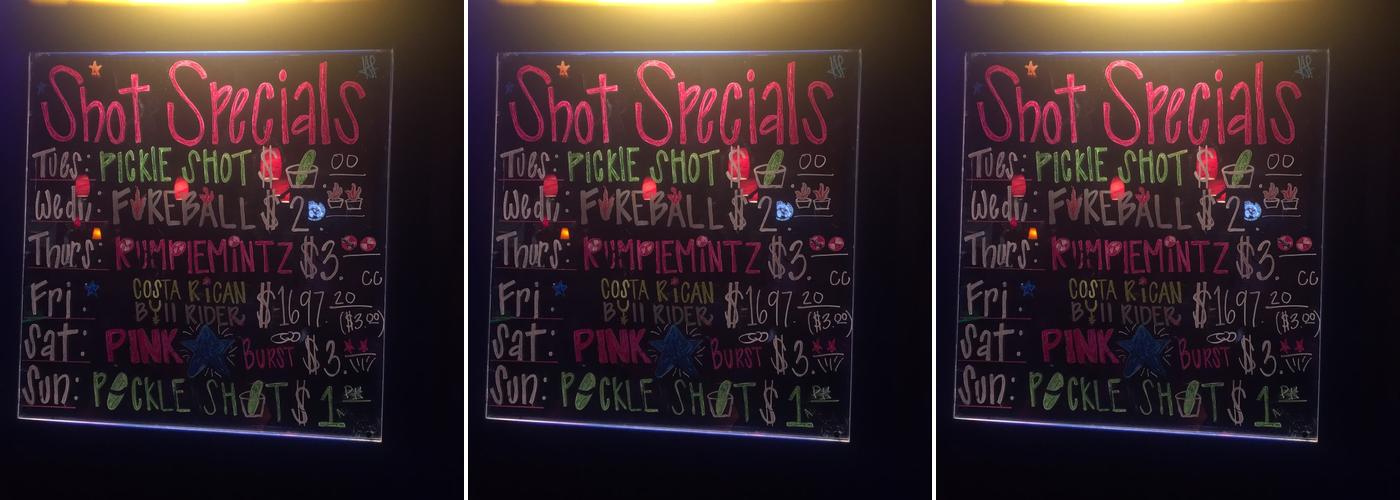 Shot Specials
Tues: PICKLE SHOT $ 00
Wed: FIREBALL $2.
Thurs: RUMPLEMINTZ $3.
Fri: COSTA RICAN BULL RIDER $1697.20 CC ($3.00)
Sat: PINK BURST $3.
Sun: PICKLE SHOT $1
Shot Specials
Tues: PICKLE SHOT $ 00
Wed: FIREBALL $2.
Thurs: RUMPLEMINTZ $3.
Fri: COSTA RICAN BULL RIDER $1697.20 CC ($3.00)
Sat: PINK BURST $3.
Sun: PICKLE SHOT $1
Shot Specials
Tues: PICKLE SHOT $ 00
Wed: FIREBALL $2.
Thurs: RUMPLEMINTZ $3.
Fri: COSTA RICAN BULL RIDER $1697.20 CC ($3.00)
Sat: PINK BURST $3.
Sun: PICKLE SHOT $1